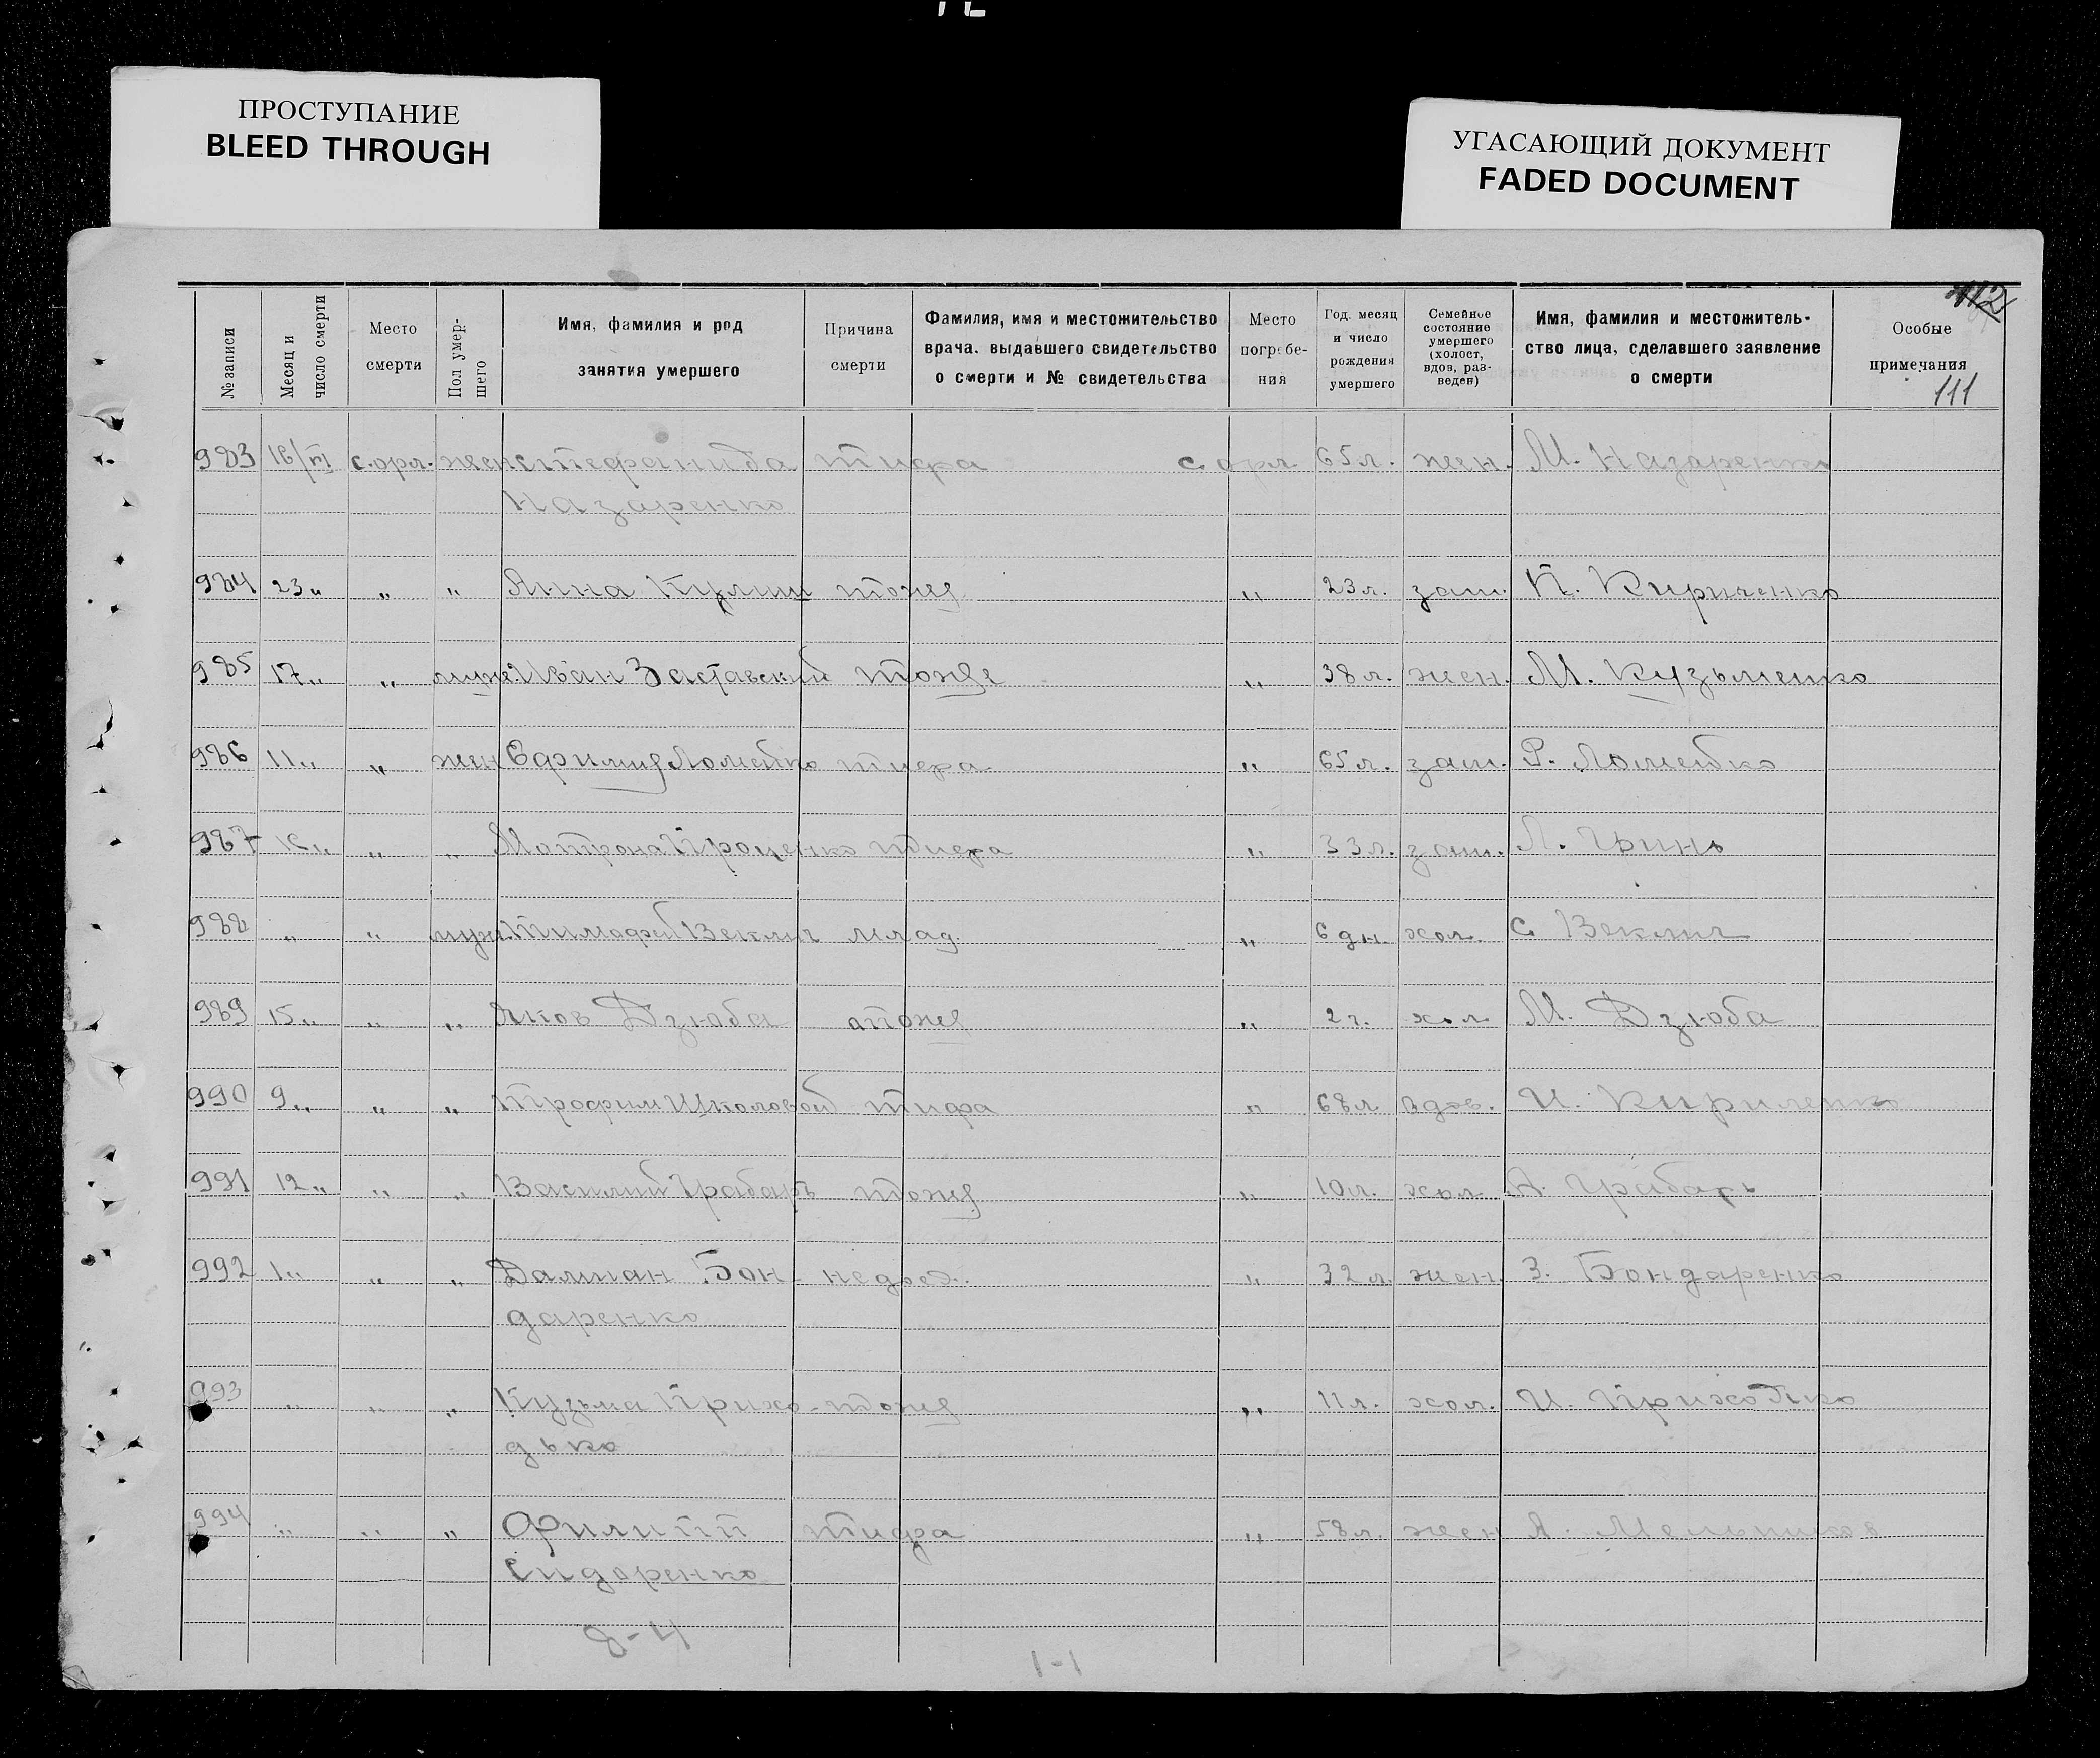 ПРОСТУПАНИЕ
BLEED THROUGH
УГАСАЮЩИЙ ДОКУМЕНТ
FADED DOCUMENT
112
№ записи
Месяц и число смерти
Место смерти
Пол умер-шего
Имя, фамилия и род занятия умершего
Причина смерти
Фамилия, имя и местожительство врача, выдавшего свидетельство о смерти и № свидетельства
Место погребе-ния
Год, месяц и число рождения умершего
Семейное состояние умершего (холост, вдов, раз-веден)
Имя, фамилия и местожитель-ство лица, сделавшего заявление о смерти
Особые примечания
111
983 16/III с.орл. жен Стефанида тифа с. орл 65 л. жен. М. Назаренко
Назаренко
984 23 „ „ „ Анна Кулиш тоже „ 23 л. зам. П. Кириченко
985 17 „ „ муж. Иван Заставский тоже „ 38 л. жен. М. Кузьменко
986 11 „ „ жен Ефимия Ломейко тифа „ 65 л. зам. Р. Ломейко
987 „ „ „ Мотрона Проценко тифа „ 33 л. зам. Л. Гринь
988 „ „ муж. Тимофей Веклич млад. „ 6 дн. хол. С Веклич
989 15 „ „ „ Яков Дзюба тоже „ 2 г. хол М. Дзюба
990 9 „ „ „ Трофим Школовой тифа „ 68 л вдов. И. Кириленко
991 12 „ „ „ Василий Грабарь тоже „ 10 л. хол А. Грабарь
992 1 „ „ „ Дамиан Бон- недоед. „ 32 л. жен. З. Бондаренко
даренко
993 „ „ „ Кузьма Прихо- тоже „ 11 л. хол. И. Приходько
дько
994 „ „ „ Филипп тифа „ 58 л. жен Я. Мельников
Сидоренко
8-4
1-1